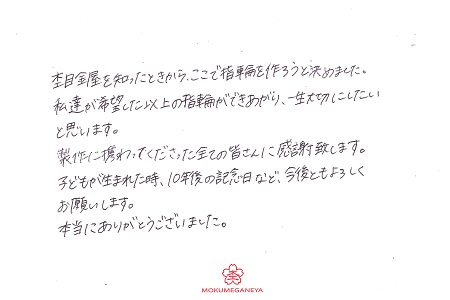 杢目金屋を知ったときから、ここで指輪を作ろうと決めました。
私達が希望した以上の指輪ができあがり、一生大切にしたい
と思います。
製作に携わってくださった全ての皆さんに感謝致します。
子どもが生まれた時、10年後の記念日など、今後ともよろしく
お願いします。
本当にありがとうございました。
MOKUMEGANEYA